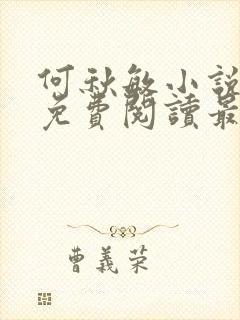 何秋敏小說
免費閱讀最
曹義榮